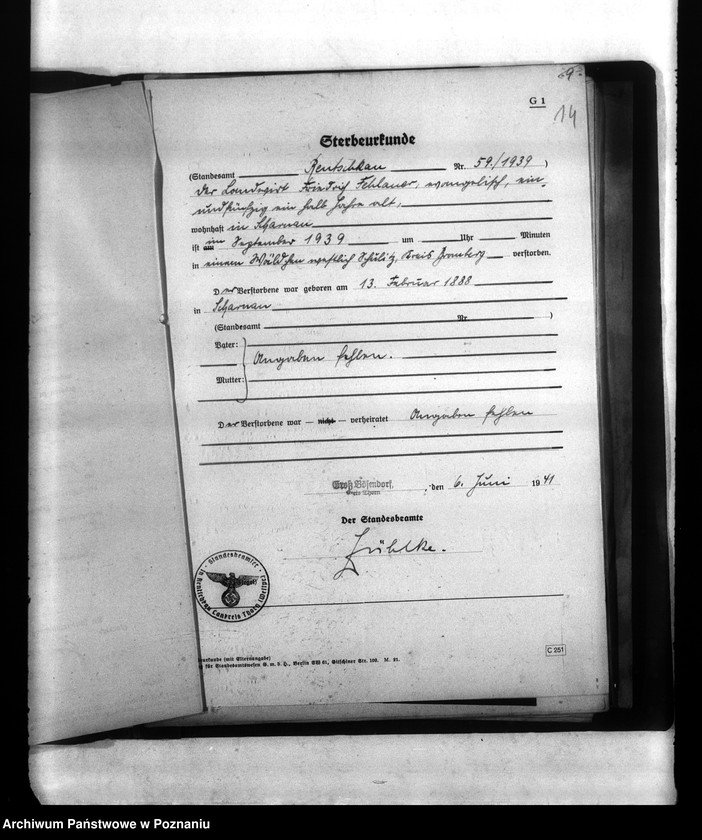 9.
G 1
14
Sterbeurkunde
(Standesamt Rentschkau Nr. 59./1939)
Der Landwirt Friedrich Fehlauer, evangelisch, ein-
undfünfzig ein halb Jahre alt,
wohnhaft in Scharnau
ist am im September 1939 um Uhr Minuten
in einem Wäldchen westlich Schulitz, Kreis Bromberg verstorben.
Der Verstorbene war geboren am 13. Februar 1888
in Scharnau
(Standesamt Nr. )
Vater:
Angaben fehlen.
Mutter:
Der Verstorbene war — nicht — verheiratet Angaben fehlen
Groß Bösendorf, den 6. Juni 1941
Kreis Thorn
Der Standesbeamte
Zühlke.
Standesbeamter in Rentschkau Landkreis Thorn (Westpr.)
(mit Elternangabe)
für Standesamtswesen G. m. b. H., Berlin SW 61, Gitschiner Str. 109. M. 21.
C 251
Archiwum Państwowe w Poznaniu